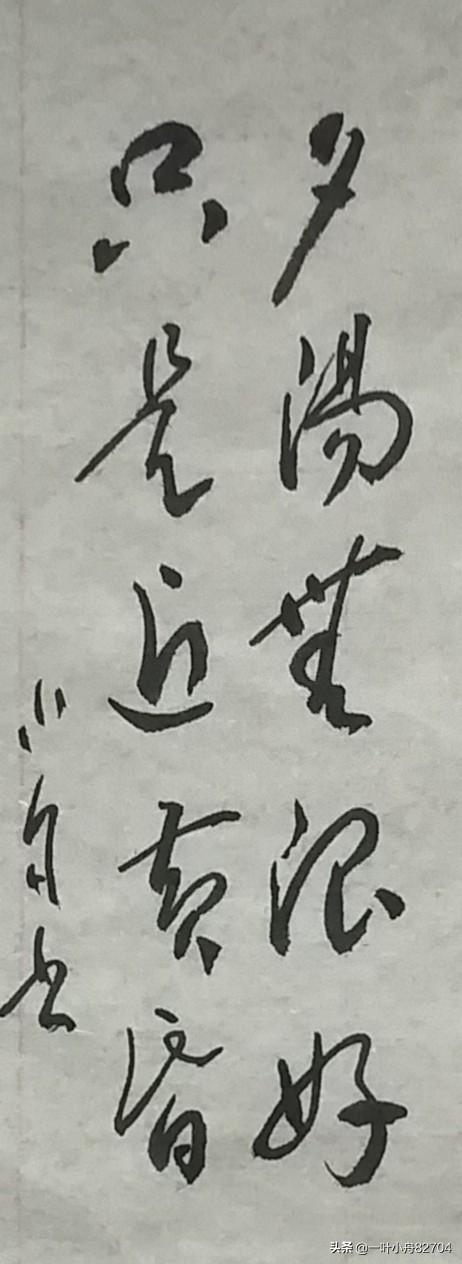 夕陽無限好
只是近黄昏
小舟书
头条 @一叶小舟82704